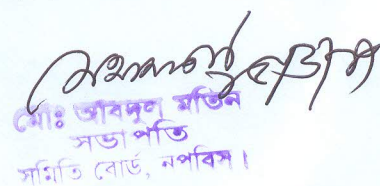 মোঃ আবদুল মতিন
সভাপতি
সমিতি বোর্ড, নপবিস।